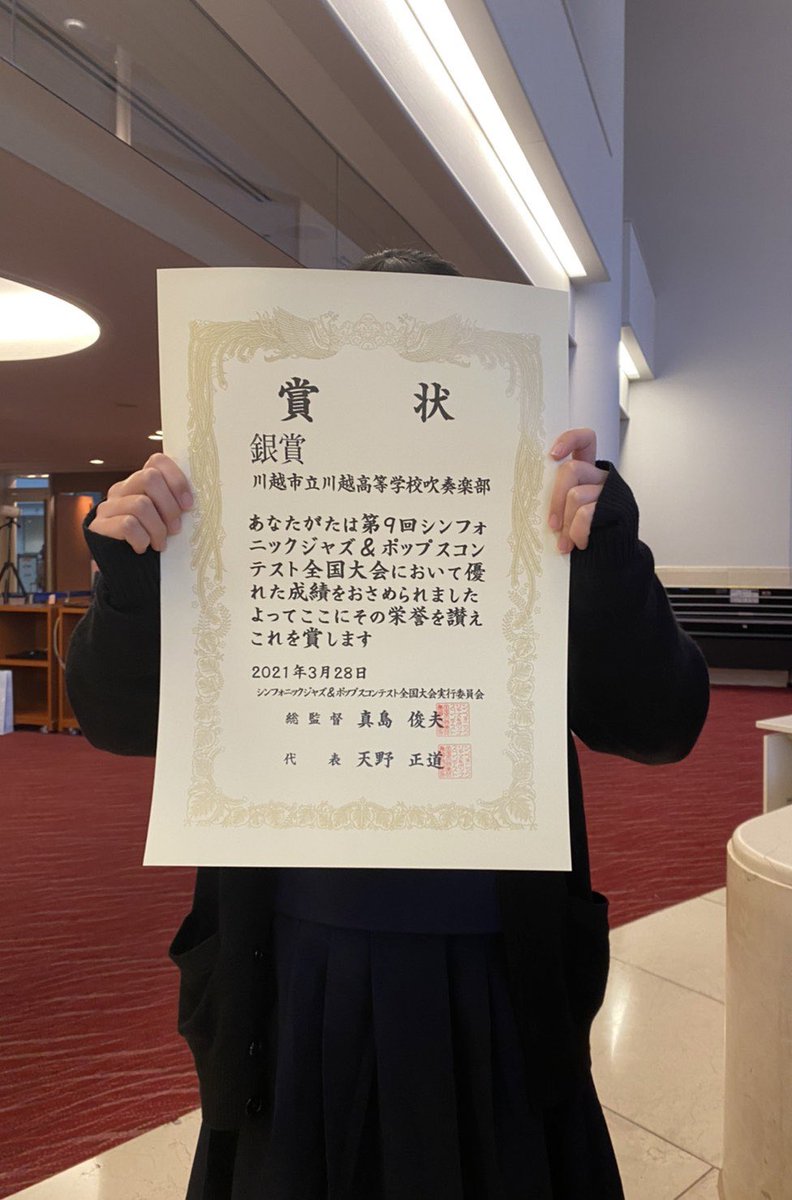 賞状
銀賞
川越市立川越高等学校吹奏楽部
あなたがたは第9回シンフォ
ニックジャズ&ポップスコン
テスト全国大会において優
れた成績をおさめられました
よってここにその栄誉を讃え
これを賞します
2021年3月28日
シンフォニックジャズ&ポップスコンテスト全国大会実行委員会
総監督 真島 俊夫
代表 天野 正道